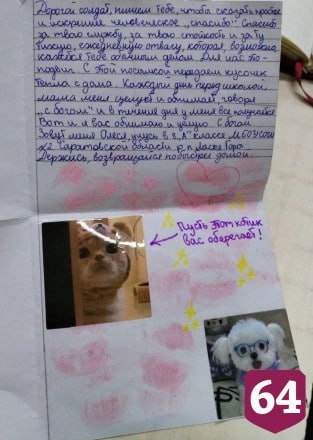 Дорогой солдат, пишем тебе, чтобы сказать простое
и искреннее человеческое „спасибо". Спасибо
за твою службу, за твою стойкость и за ту
тихую, ежедневную отвагу, которая, возможно,
кажется тебе обычным делом. Для нас это-
подвиг. С этой посылкой передаем кусочек
тепла с дома. Каждый день перед школой
мама меня целует и обнимает, говоря
„с богом" и в течение дня у меня все получается
Вот и я вас обнимаю и целую. С богом
Зовут меня Олеся, учусь в 2 „А" классе МБОУСОШ
№2 Саратовской области р.п Лысые Горы.
Держись, возвращайся побыстрее домой
Пусть этот котик
вас оберегает!
64